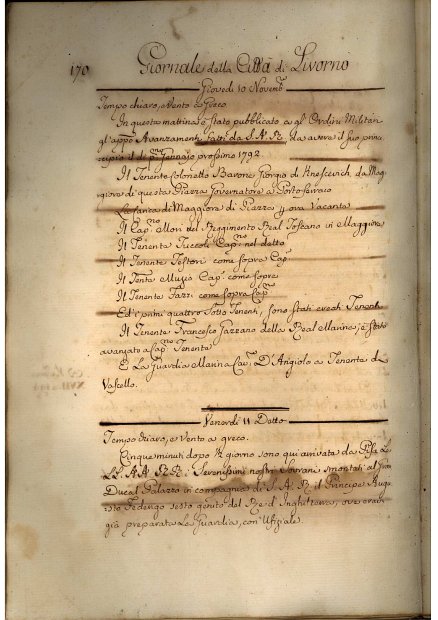 170 Giornale della Città di Livorno
Giovedi 10 Novemb.
Tempo chiaro, e Vento a Greco
In questa mattina è stato pubblicato a gl'Ordini Militari
gl'appo Avanzamenti fatti da S. A. R. da avere il suo prin-
cipio il di p.mo Gennajo prossimo 1792
Il Tenente Colonnello Barone Giorgio di Knesevich, da Mag-
giore di questa Piazza Governatore a Portoferraio
La carica di Maggiore di Piazza y ora Vacante
Il Cap.no del Reggimento Real Toscano in Maggiore
Il Tenente Tuccoli Cap.no nel detto
Il Tenente Testori come sopra Cap.
Il Tente come sopra
Il Tenente Fazzi come sopra Cap.no
Ed i primi quattro Sotto Tenenti, sono stati creati Tenenti
Il Tenente Francesco Gazzano della Real Marina, è stato
avanzato a Cap.no Tenente
E La Guardia Marina Cav. D'Angiolo a Tenente di
Vascello.
Venerdi 11 Detto
Tempo chiaro, e Vento a greco.
Cinque minuti dopo ½ giorno sono qui arrivati da Pisa Le
LL. AA. RR. i Serenissimi nostri Sovrani smontati al Gran
Ducal Palazzo in compagnia di S. A. R. il Principe Augu-
sto Federigo sesto genito del Re d'Inghilterra, ove era
già preparata La Guardia, con Ufiziale.